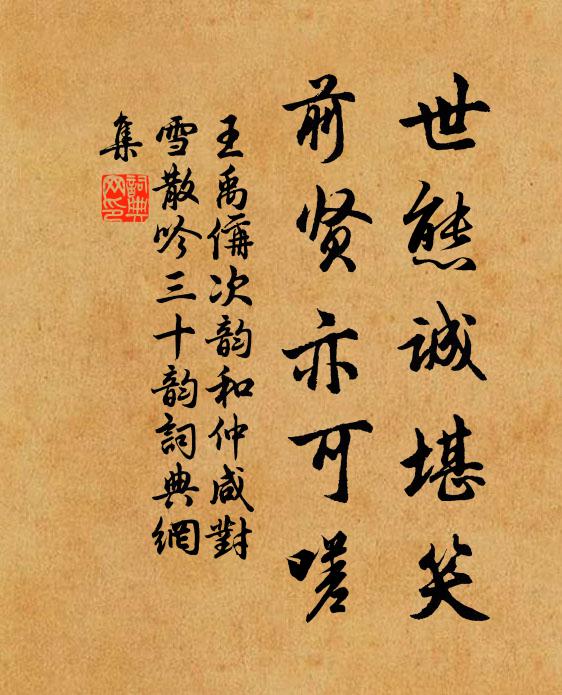 世態誠堪笑
前贤亦可嗟
王禹偁次韵和仲咸對
雪散吟三十韵詞典網
集
詞典
网印